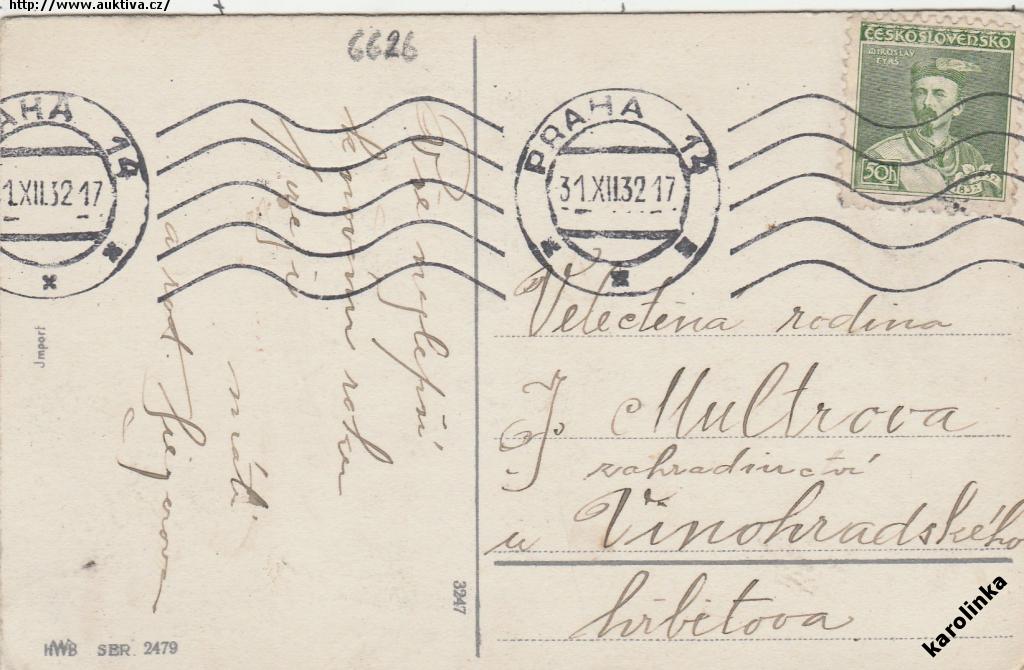 http://www.auktiva.cz/
6626
PRAHA 14
1.XII.32 17
PRAHA 14
31.XII.32 17
ČESKOSLOVENSKO
MIROSLAV
TYRŠ
50h
1832
Vše nejlepší
k novému roku
přeji
máti
a rod.
Import
HWB SER. 2479
3247
Velectěna rodina
J. Multrova
zahradinctví
u Vinohradského
hřbitova
karolinka